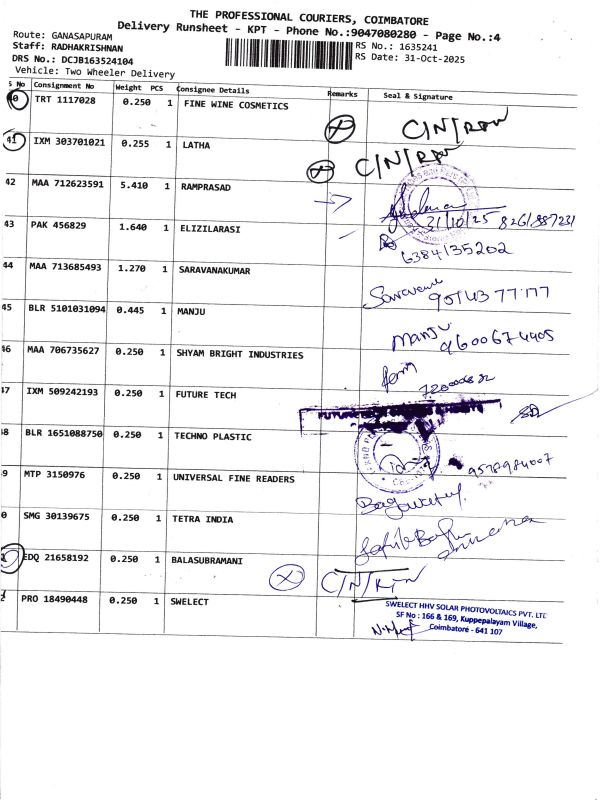 THE PROFESSIONAL COURIERS, COIMBATORE
Delivery Runsheet - KPT - Phone No.:9047080280 - Page No.:4
Route: GANASAPURAM
Staff: RADHAKRISHNAN
DRS No.: DCJB163524104
Vehicle: Two Wheeler Delivery
RS No.: 1635241
RS Date: 31-Oct-2025
S No Consignment No Weight PCS Consignee Details Remarks Seal & Signature
40 TRT 1117028 0.250 1 FINE WINE COSMETICS C/N/RPW
41 IXM 303701021 0.255 1 LATHA C/N/RPW
42 MAA 712623591 5.410 1 RAMPRASAD
31/10/25
43 PAK 456829 1.640 1 ELIZILARASI 6384135202
44 MAA 713685493 1.270 1 SARAVANAKUMAR
45 BLR 5101031094 0.445 1 MANJU Manju
9600674405
46 MAA 706735627 0.250 1 SHYAM BRIGHT INDUSTRIES
47 IXM 509242193 0.250 1 FUTURE TECH
48 BLR 1651088750 0.250 1 TECHNO PLASTIC 9578984007
9 MTP 3150976 0.250 1 UNIVERSAL FINE READERS
0 SMG 30139675 0.250 1 TETRA INDIA
EDQ 21658192 0.250 1 BALASUBRAMANI C/N/RPW
2 PRO 18490448 0.250 1 SWELECT
SWELECT HHV SOLAR PHOTOVOLTAICS PVT. LTD
SF No : 166 & 169, Kuppepalayam Village,
Coimbatore - 641 107